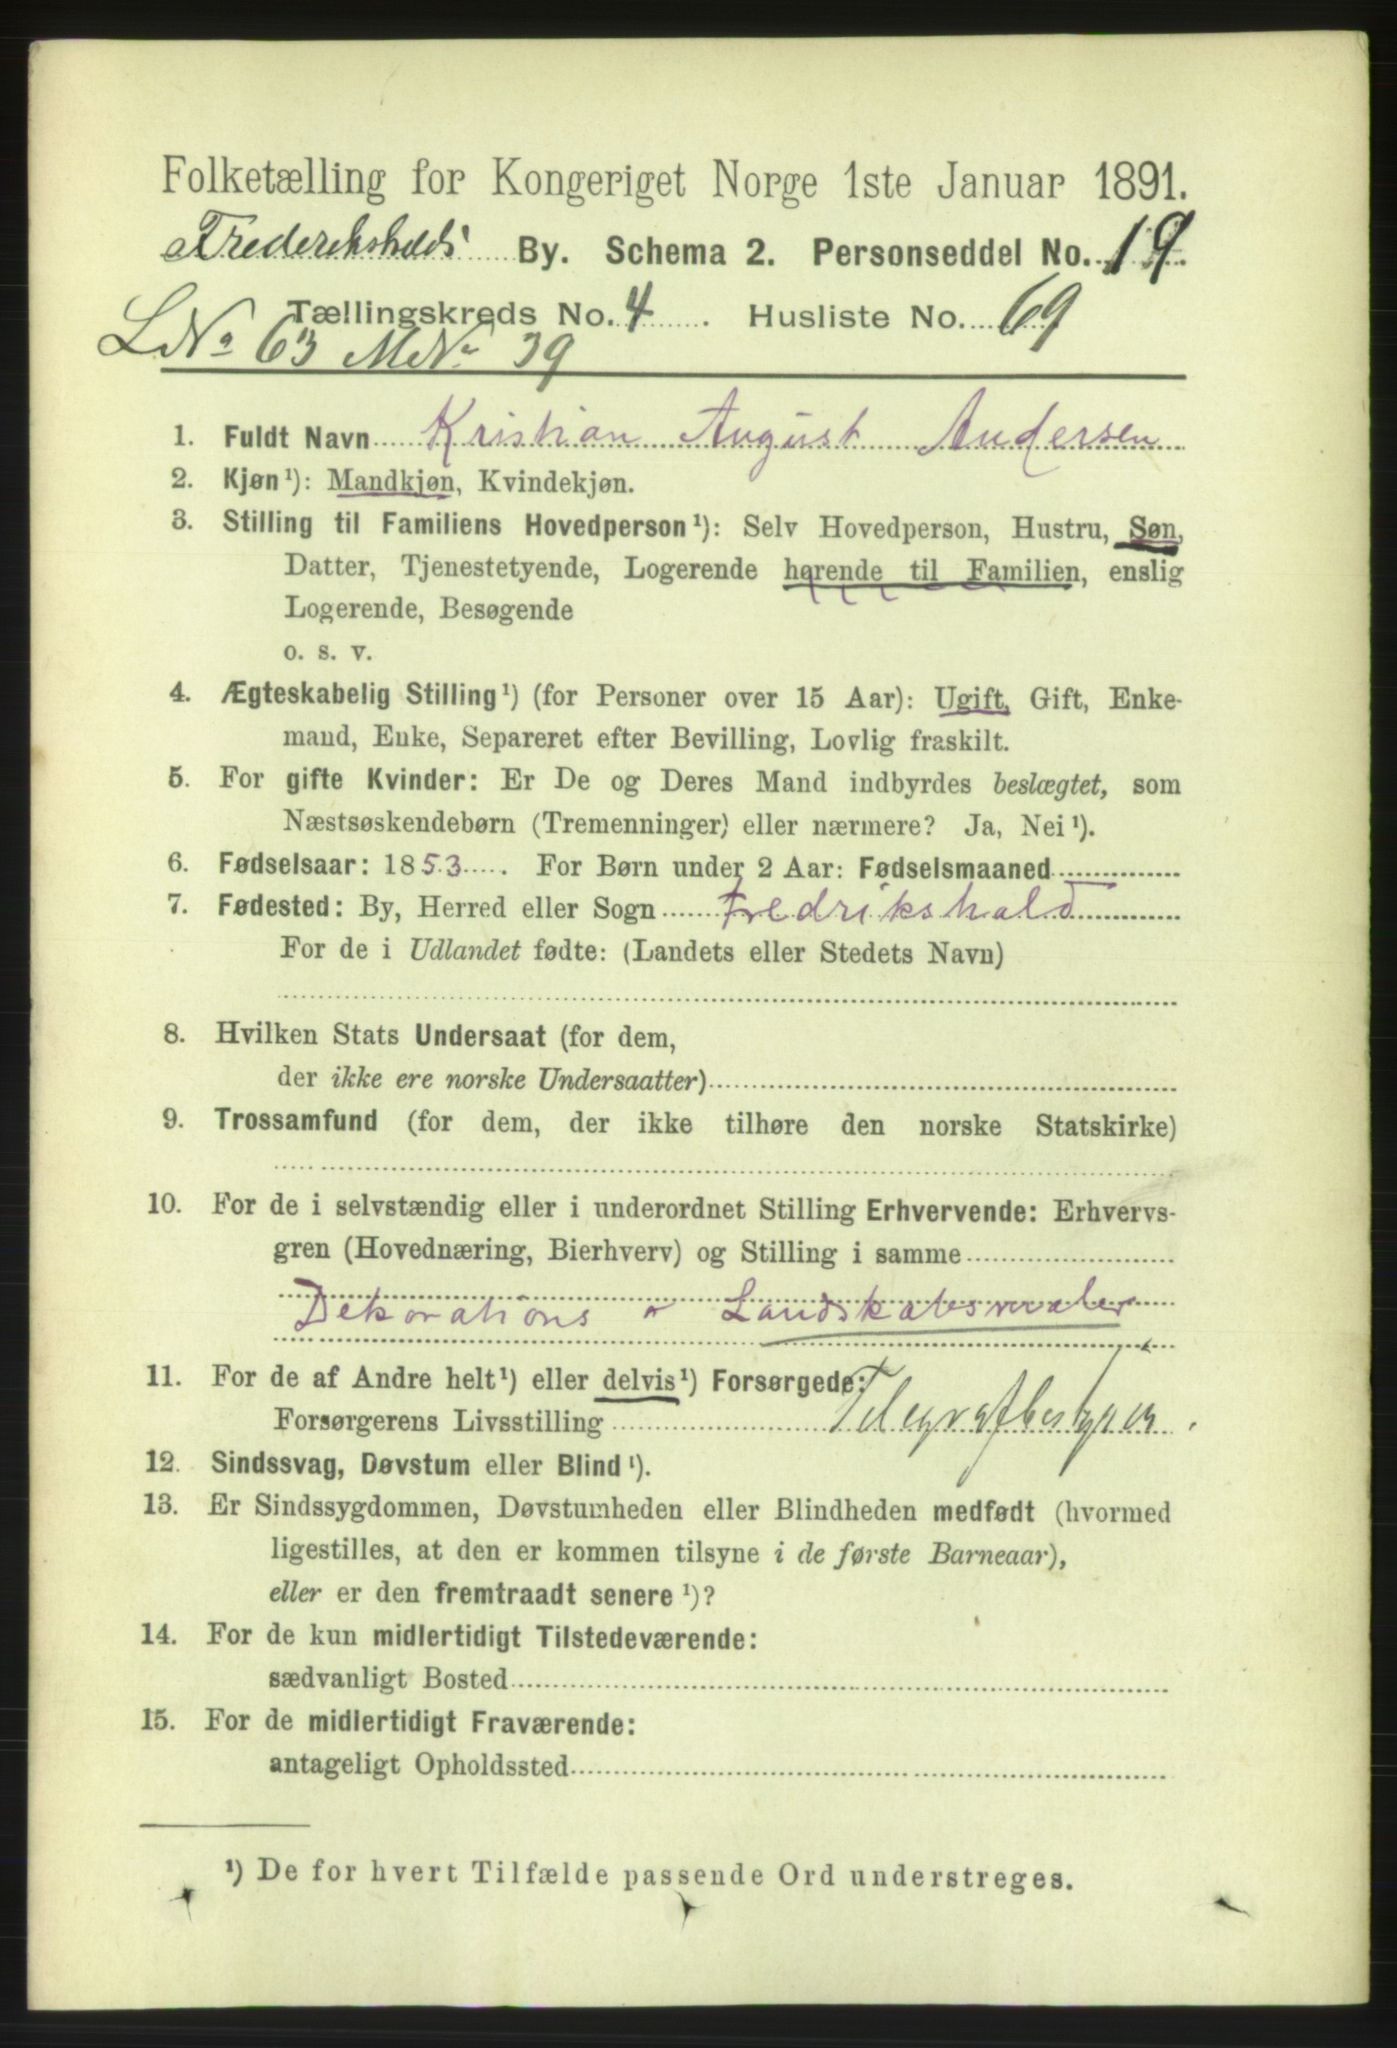 Folketælling for Kongeriget Norge 1ste Januar 1891.
Frederikshalds By. Schema 2. Personseddel No. 19.
Tællingskreds No. 4. Husliste No. 69
LNo 63 MNo 39
1. Fuldt Navn Kristian August Andersen
2. Kjøn¹): Mandkjøn, Kvindekjøn.
3. Stilling til Familiens Hovedperson¹): Selv Hovedperson, Hustru, Søn,
Datter, Tjenestetyende, Logerende hørende til Familien, enslig
Logerende, Besøgende
o. s. v.
4. Ægteskabelig Stilling¹) (for Personer over 15 Aar): Ugift, Gift, Enke-
mand, Enke, Separeret efter Bevilling, Lovlig fraskilt.
5. For gifte Kvinder: Er De og Deres Mand indbyrdes beslægtet, som
Næstsøskendebørn (Tremenninger) eller nærmere? Ja, Nei¹).
6. Fødselsaar: 1853. For Børn under 2 Aar: Fødselsmaaned
7. Fødested: By, Herred eller Sogn Fredrikshald
For de i Udlandet fødte: (Landets eller Stedets Navn)
8. Hvilken Stats Undersaat (for dem,
der ikke ere norske Undersaatter)
9. Trossamfund (for dem, der ikke tilhøre den norske Statskirke)
10. For de i selvstændig eller i underordnet Stilling Erhvervende: Erhvervs-
gren (Hovednæring, Bierhverv) og Stilling i samme
Dekorations Landskabsmaler
11. For de af Andre helt¹) eller delvis¹) Forsørgede:
Forsørgerens Livsstilling Telegrafbestyrer.
12. Sindssvag, Døvstum eller Blind¹).
13. Er Sindssygdommen, Døvstumheden eller Blindheden medfødt (hvormed
ligestilles, at den er kommen tilsyne i de første Barneaar),
eller er den fremtraadt senere¹)?
14. For de kun midlertidigt Tilstedeværende:
sædvanligt Bosted
15. For de midlertidigt Fraværende:
antageligt Opholdssted
¹) De for hvert Tilfælde passende Ord understreges.